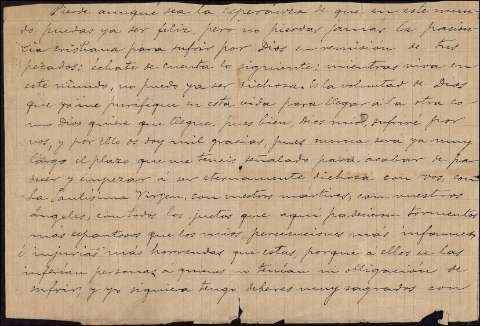 Pierde aunque sea la esperanza de que en este mun-
do puedas ya ser feliz, pero no pierdas jamas la pacien-
cia cristiana para sufrir por Dios en remision de tus
pecados: échate de cuenta lo siguiente: mientras viva en
este mundo, no puedo ya ser dichosa. Es la voluntad de Dios
que yo me purifique en esta vida para llegar á la otra co-
mo Dios quiere que llegue. Pues bien, Dios mio, sufriré por
vos, y por ello os doy mil gracias, pues nunca será ya muy
largo el plazo que me teneis señalado para acabar de pa-
decer y empezar á ser eternamente dichosa con vos, con
la Santísima Virgen, con vuestros martires, con vuestros
ángeles, con todos los justos que aqui padecieron tormentos
más espantosos que los mios, persecuciones más infames,
é injurias más horrendas que estas, porque á ellos se las
inferian personas á quienes no tenian ni obligacion de
sufrir, y yo siquiera tengo deberes muy sagrados con